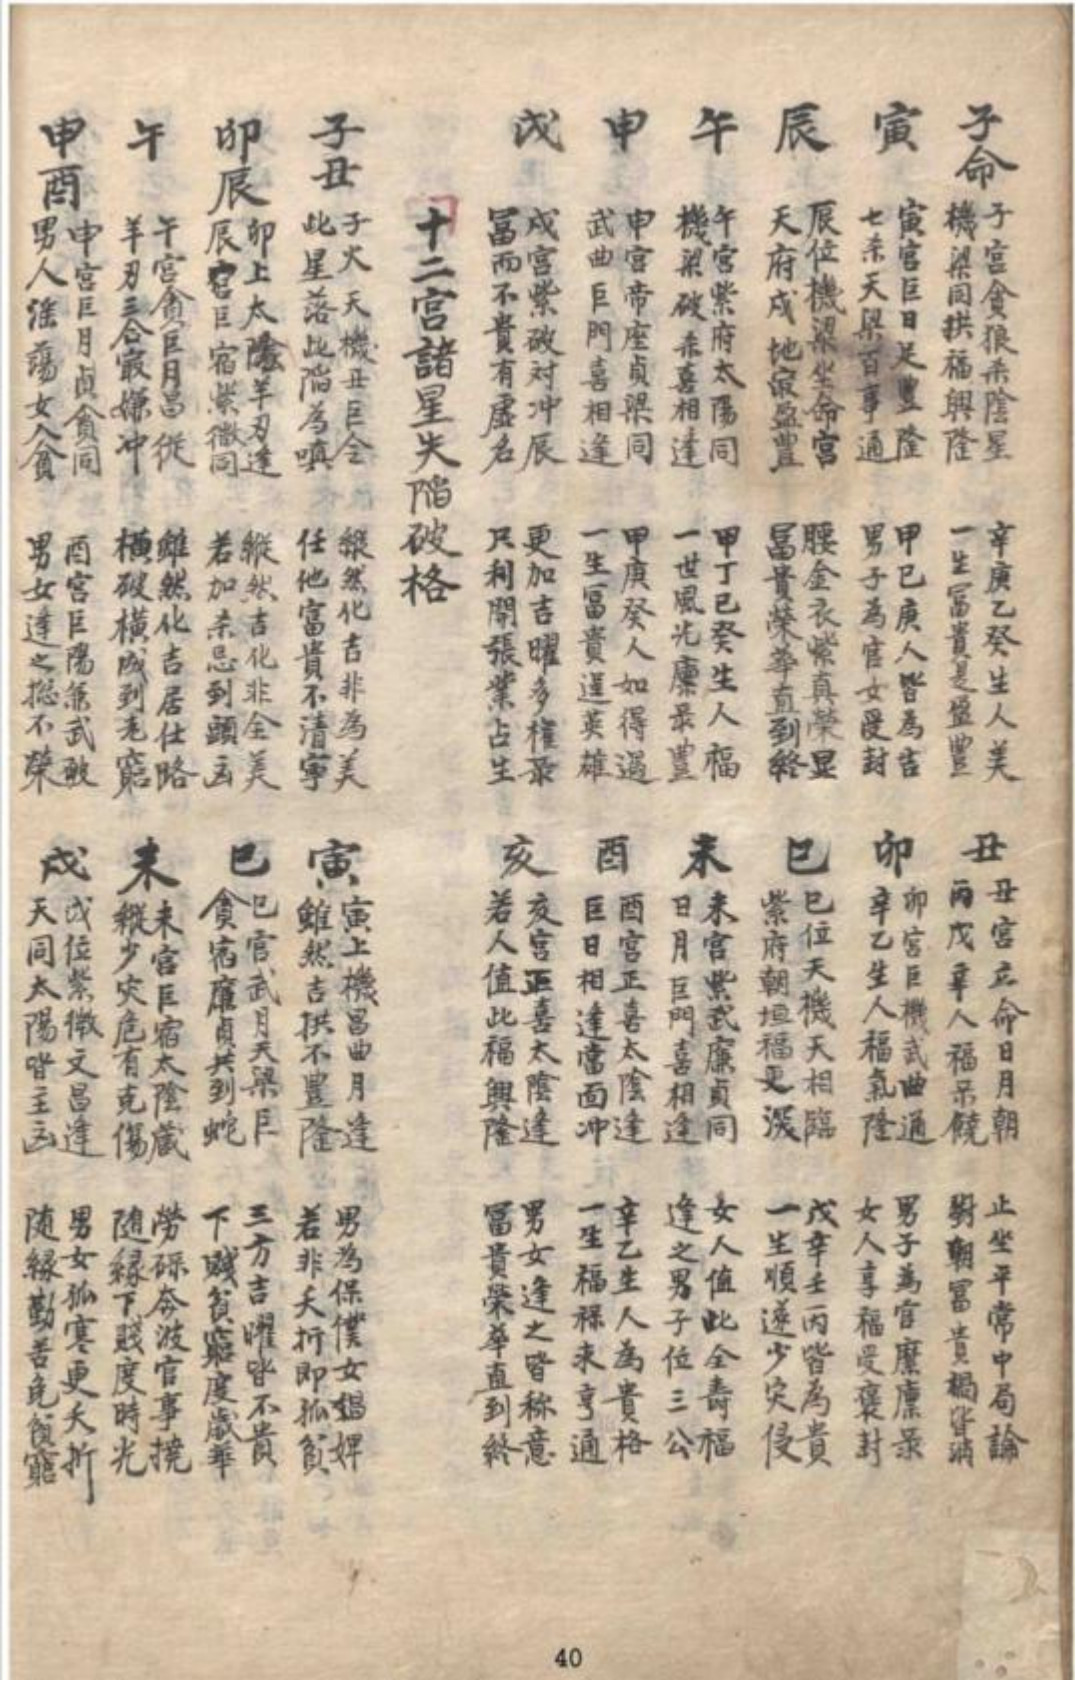 子命
子宮貪狼杀陰星
機梁同拱福興隆
辛庚乙癸生人美
一生冨貴是盈豐
丑
丑宮立命日月朝
丙戊辛人福
止坐平常中局論
對朝冨貴福皆消
寅
寅宮巨日足豐隆
七杀天梁百事通
甲巳庚人皆為吉
男子為官女受封
卯
卯宮巨機武曲通
辛乙生人福氣隆
男子為官縻廪录
女人享福受褒封
辰
辰位機梁坐命宮
天府戍地㝡盈豐
腰金衣紫真榮显
冨貴榮華直到終
巳
巳位天機天相臨
紫府朝垣福更深
戊辛壬丙皆為貴
一生順遂少灾侵
午
午宮紫府太陽同
機梁破杀喜相逢
甲丁巳癸生人福
一世風光廪录豐
未
未宮紫武廉貞同
日月巨門喜相逢
女人值此全壽福
逢之男子位三公
申
申宮帝座貞梁同
武曲巨門喜相逢
甲庚癸人如得遇
一生冨貴逞英雄
酉
酉宮正喜太陰逢
巨日相逢當面冲
辛乙生人為貴格
一生福禄來亨通
戍
戍宮紫破对冲辰
冨而不貴有虛名
更加吉曜多權录
只利開張業占生
亥
亥宮正喜太陰逢
若人值此福興隆
男女逢之皆称意
冨貴榮華直到終
十二宮諸星失陷破格
子丑
子火天機丑巨全
此星落此陷為嗔
縱然化吉非為美
任他富貴不清寧
寅
寅上機昌曲月逢
雖然吉拱不豐隆
男為保僕女娼婢
若非夭折即孤貧
卯辰
卯上太陰羊刃逢
辰宮巨宿紫微同
縱然吉化非全美
若加杀忌到頭凶
巳
巳宮武月天梁巨
貪宿廉貞共到蛇
三方吉曜皆不贵
下賤貧窮度歲華
午
午宮貪巨月昌從
羊刃三合㝡嫌冲
雖然化吉居仕路
横破横成到老窮
未
未宮巨宿太陰藏
縱少灾危有克傷
勞碌奔波官事撓
随緣下賤度時光
申酉
申宮巨月貞貪同
男人淫蕩女人貪
酉宮巨陽兼武敗
男女逢之摠不榮
戍
戍位紫微文昌逢
天同太陽皆主凶
男女孤寒更夭折
随緣勤苦免貧窮
40